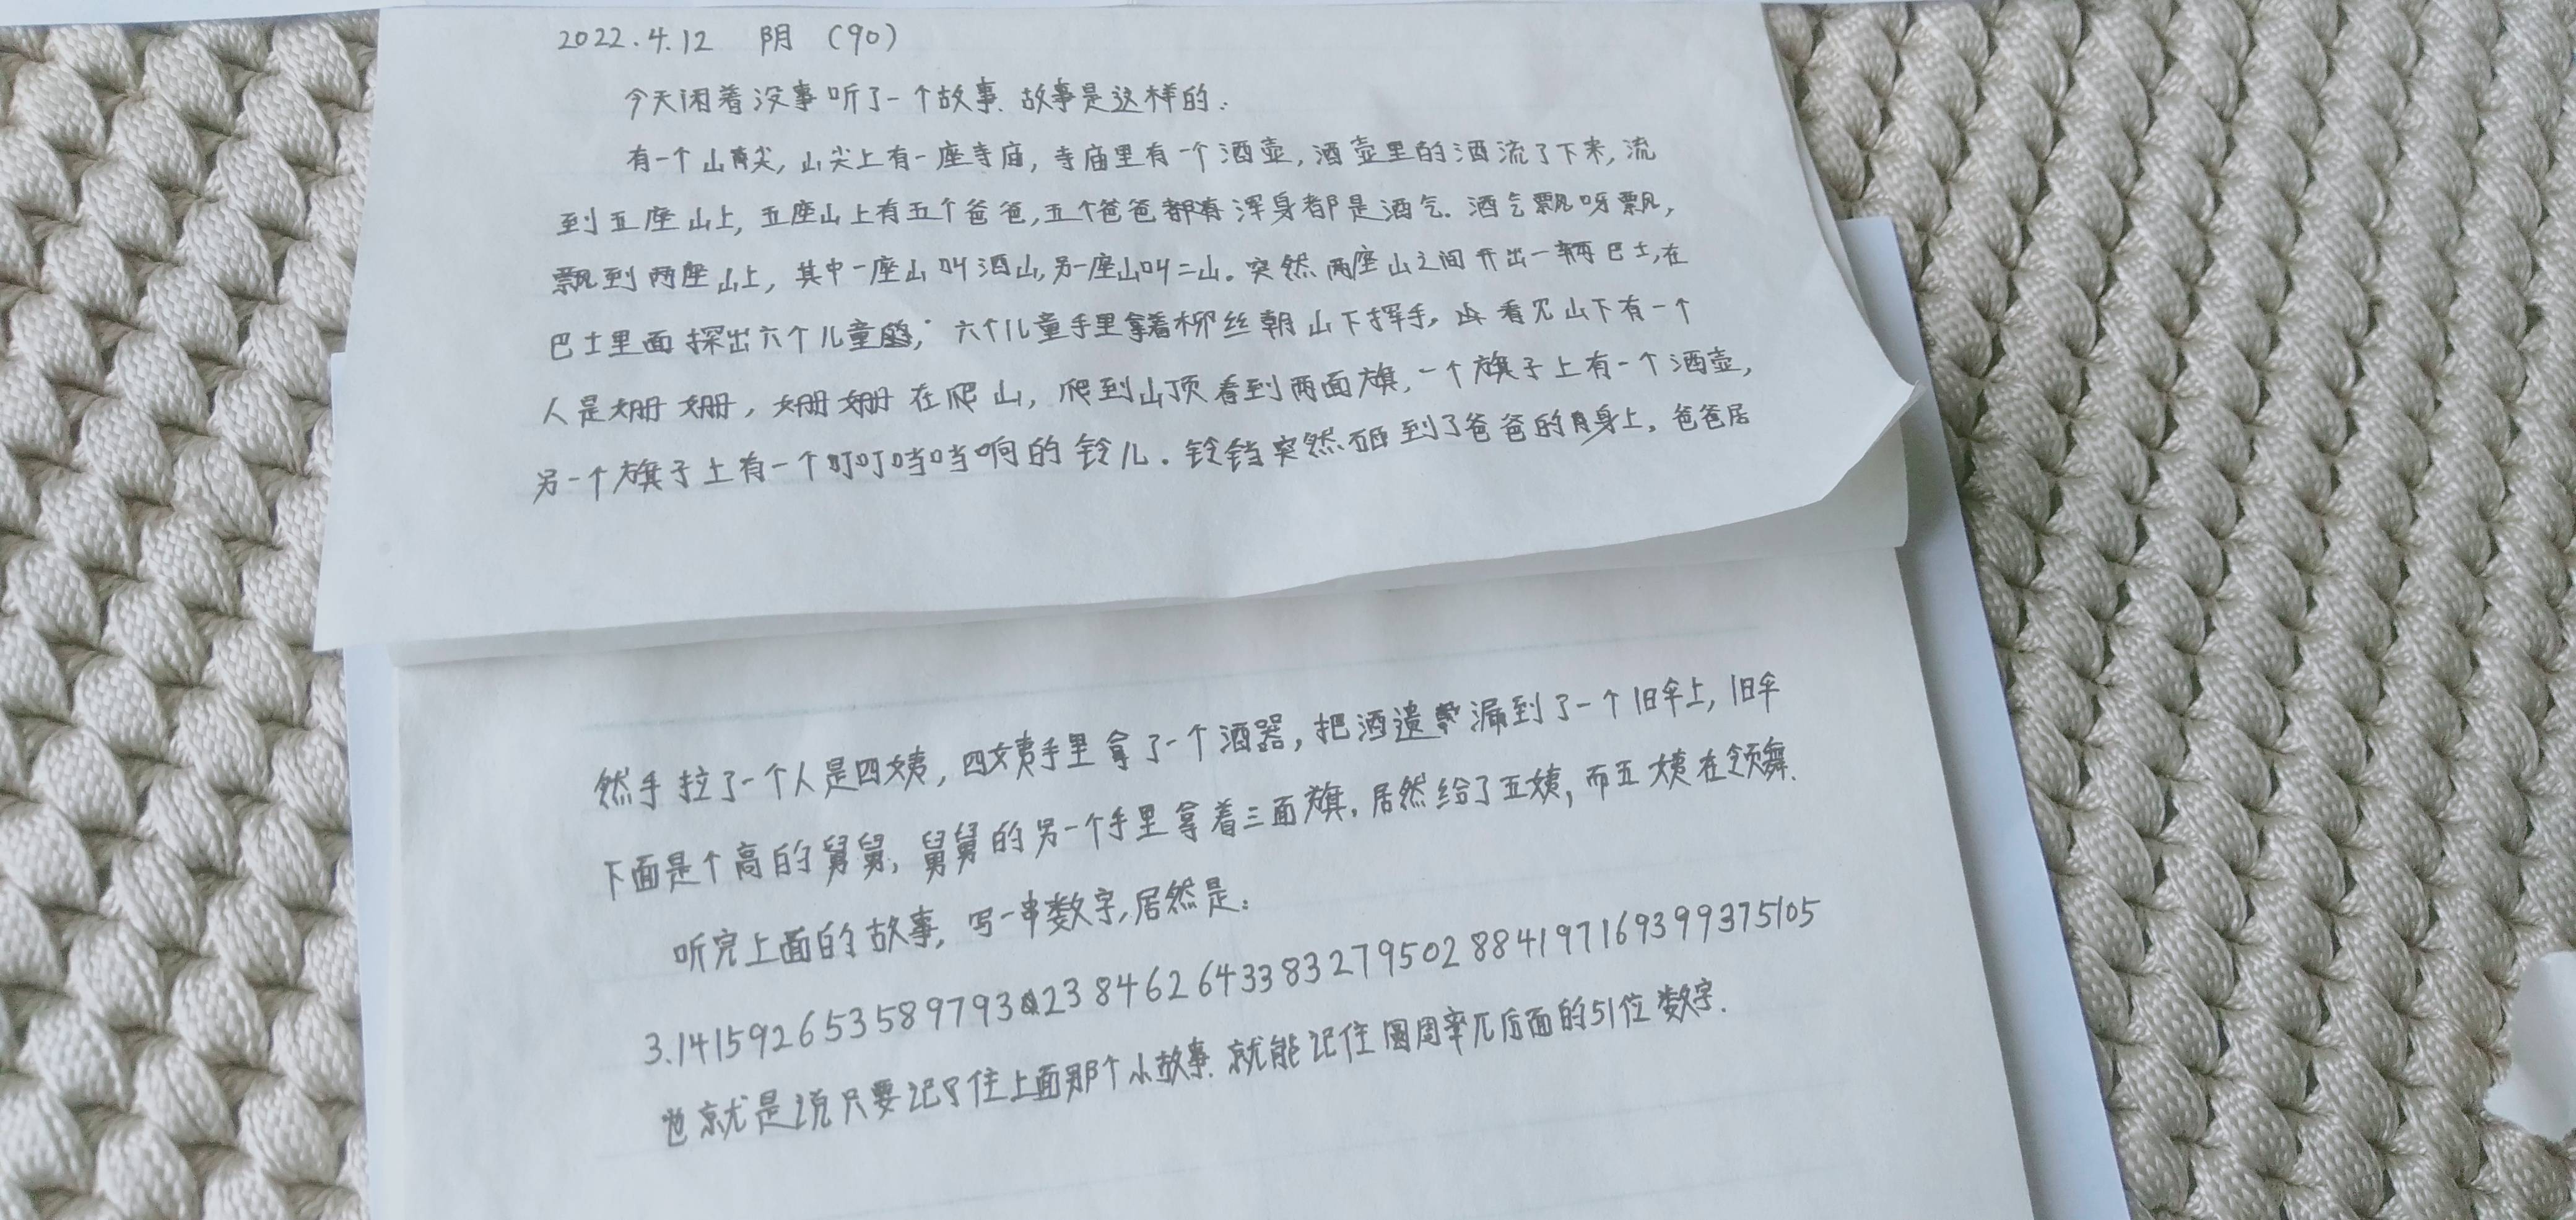 2022.4.12 阴 (90)
今天闲着没事听了一个故事.故事是这样的:
有一个山尖,山尖上有一座寺庙,寺庙里有一个酒壶,酒壶里的酒流了下来,流
到五座山上,五座山上有五个爸爸,五个爸爸浑身都是酒气.酒气飘呀飘,
飘到两座山上,其中一座山叫酒山,另一座山叫二山。突然两座山之间开出一辆巴士,在
巴士里面探出六个儿童,六个儿童手里拿着柳丝朝山下挥手,看见山下有一个
人是姗姗,姗姗在爬山,爬到山顶看到两面旗,一个旗子上有一个酒壶,
另一个旗子上有一个叮叮当当响的铃儿.铃铛突然砸到了爸爸的身上。爸爸居
然手拉了一个人是四姨,四姨手里拿了一个酒器,把酒遗漏到了一个旧伞上,旧伞
下面是个高的舅舅,舅舅的另一个手里拿着三面旗,居然给了五姨,而五姨在领舞.
听完上面的故事,写一串数字,居然是:
3.141592653589793238462643383279502884197169399375105
也就是说只要记住上面那个小故事.就能记住圆周率π后面的51位数字.